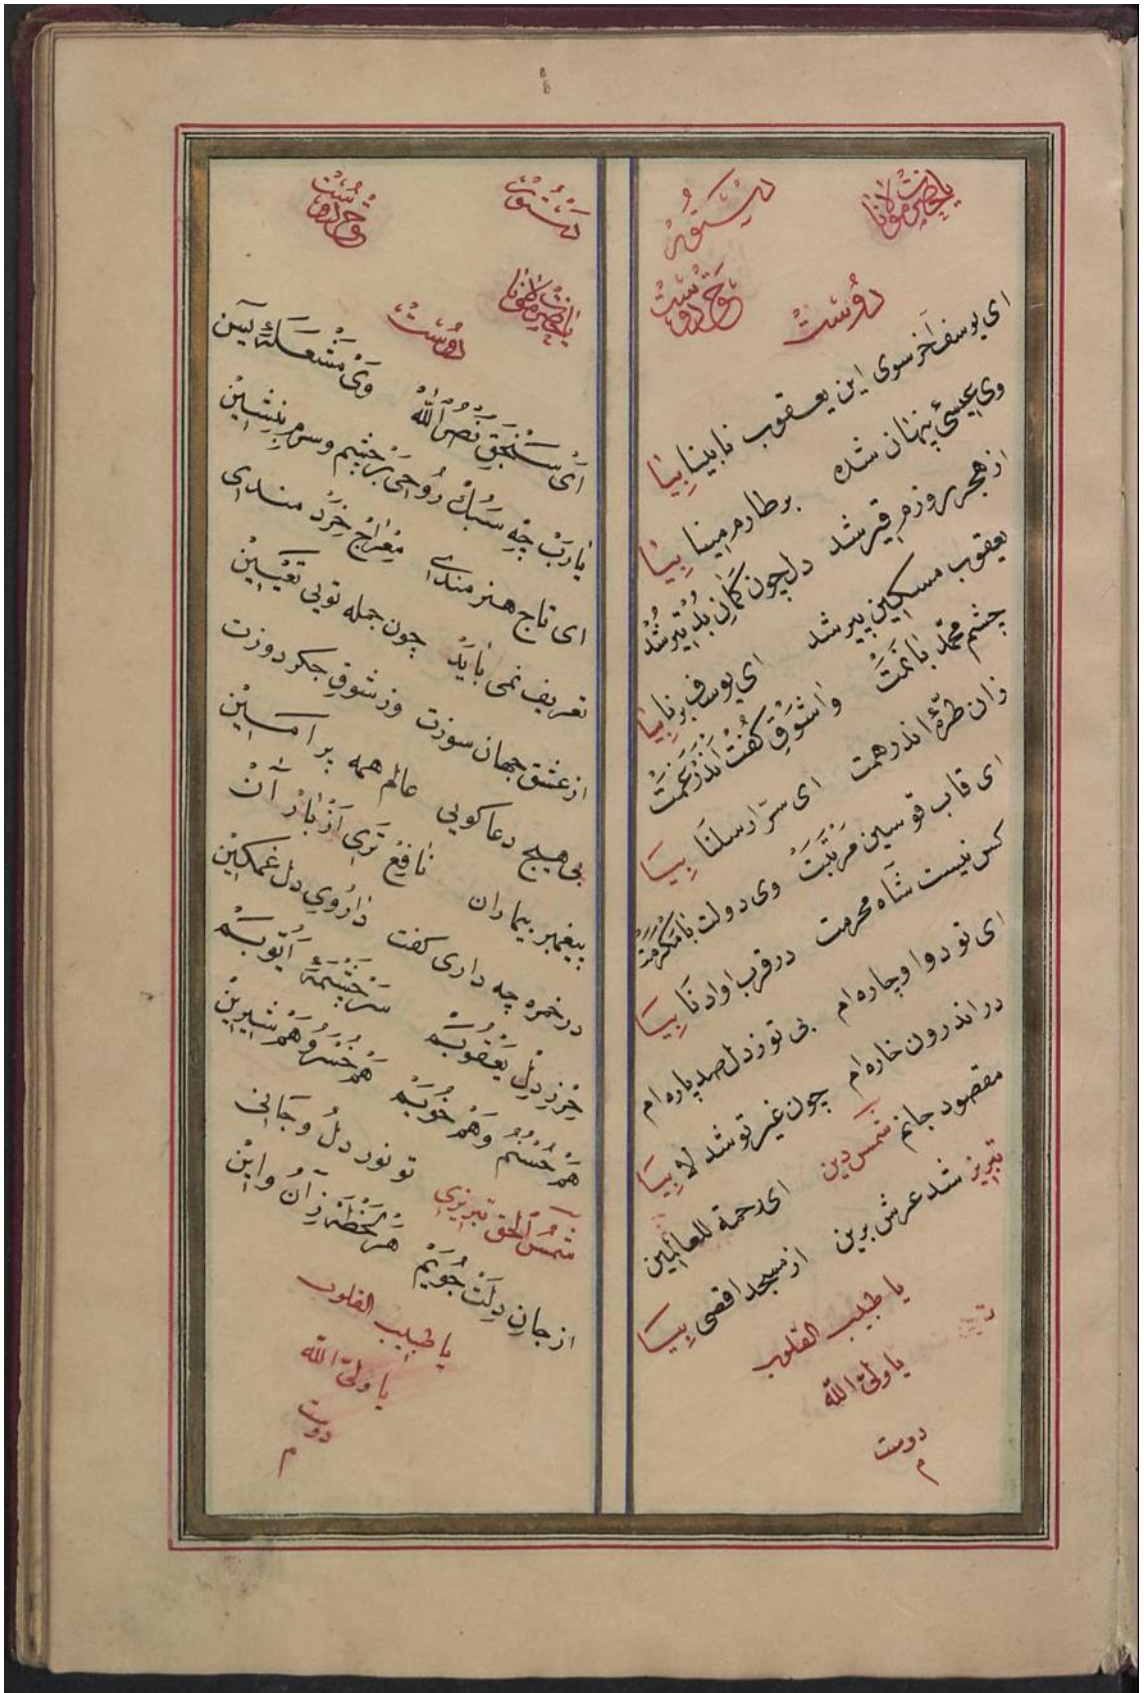 یا حضرت مولانا
دستور
حق دوست
دوست
ای یوسف آخر سوی این یعقوب نابینا بیا
وی عیسئ پنهان شده بر طارم مینا بیا
از هجر روزم قیر شد دل چون کمان بد تیر شد
یعقوب مسکین پیر شد ای یوسف برنا بیا
چشم محمد با نمت واشوق کفت اندر غمت
زان طرّۀ اندر همت ای سرّ ارسلنا بیا
ای قاب قوسین مرتبت وی دولت با مکرمت
کس نیست شاه محرمت در قرب او ادنا بیا
ای تو دوا و چاره ام بی تو ز دل صد پاره ام
در اندرون خاره ام چون غیر تو شد لا بیا
مقصود جانم شمس دین ای رحمة للعالمین
تبریز شد عرش برین از مسجد اقصی بیا
یا طبیب القلوب
یا ولیّ الله
دوست
م
دستور
حق دوست
یا حضرت مولانا
دوست
ای سنجق نصر الله وی مشعلۀ یسین
یا رب چه سبک روحی بر چشم و سرم بنشین
ای تاج هنرمندی معراج خردمندی
تعریف نمی باید چون جمله تویی تعیین
از عشق جهان سوزت وز شوق جکر دوزت
بی هیچ دعا کویی عالم همه پر امین
بیغمبر بیماران نافع تری از باران
در خمره چه داری کفت داروی دل غمکین
حرز دل یعقوبم سر چشمۀ ایّوبم
هم حسنم و هم خوبم هم خسرو هم شیرین
شمس الحق تبریزی تو نور دل و جانی
از جان دلت جویم هر لحظه ز آن و این
یا طبیب القلوب
یا ولیّ الله
دوست
م